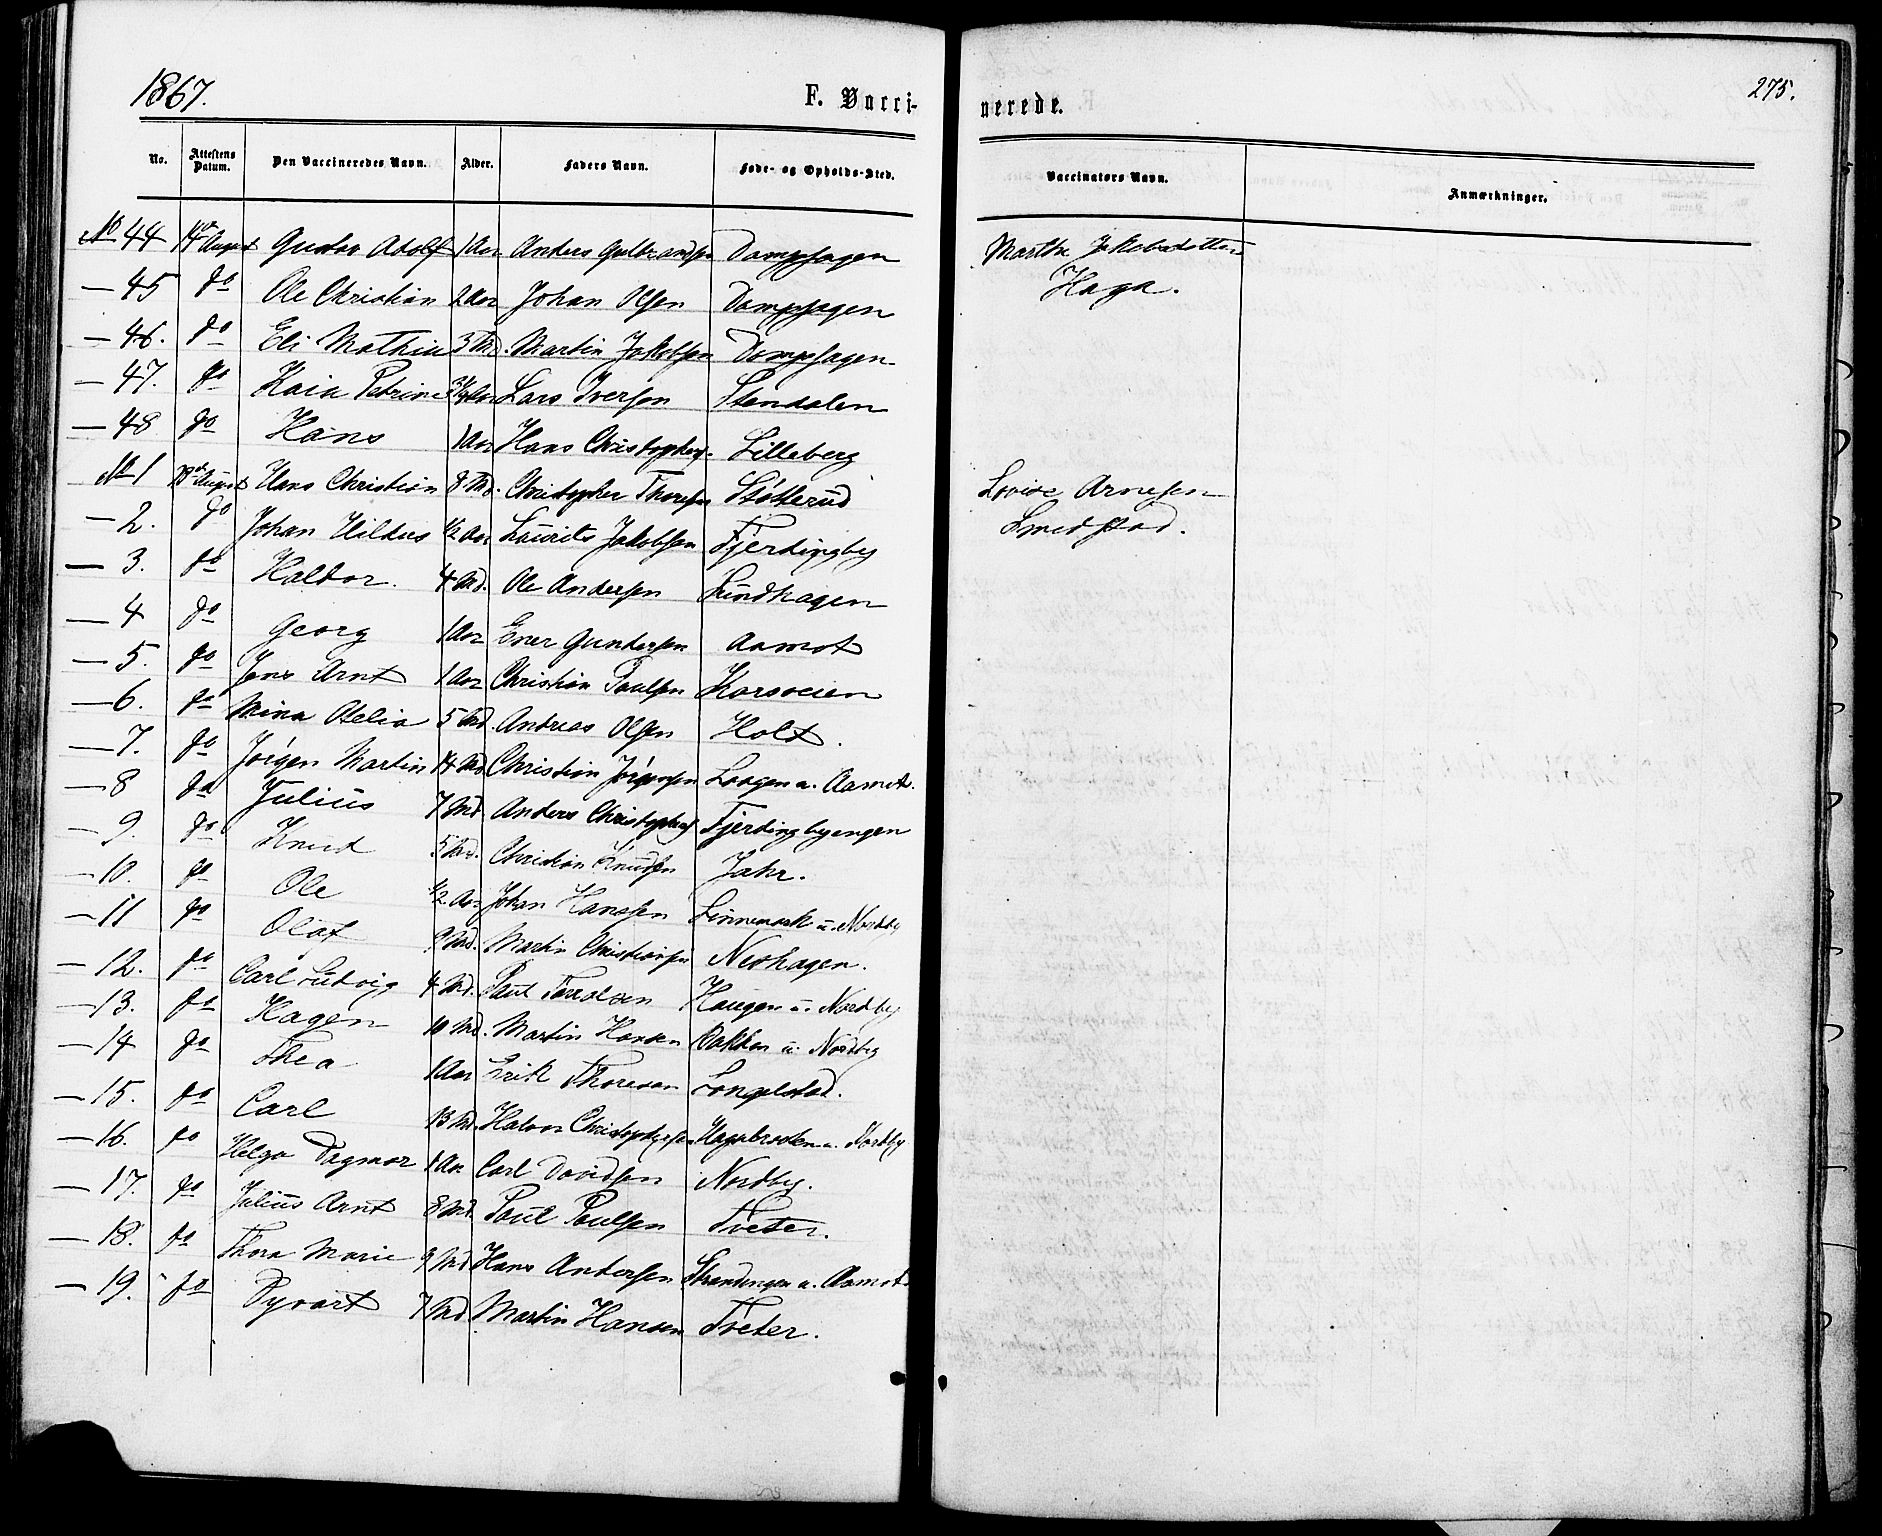 1867.
F. Vacci-
nerede.
275.
No. Attestens Datum. Den Vaccineredes Navn. Alder. Faders Navn. Føde- og Opholds-Sted. Vaccinators Navn. Anmærkninger.
No 44 14de August Gustav Adolf 1 Aar Anders Gulbrandsen Dampsagen Marthe Jakobsdatter
— 45 do Ole Christian 2 Aar Johan Olsen Dampsagen Haga.
— 46. do Eli Mathia 3 Md. Martin Jakobsen Dampsagen
— 47. do Kaia Petrine Aar Lars Iversen Stendalen
— 48 do Hans 1 Aar Hans Christophers. Lilleberg
No 1 August Hans Christian 8 Md. Christopher Thoresen Støtterud Lovise Arnesen
— 2. do Johan Hildus ½ Aar Laurits Jakobsen Fjerdingby Smedstad.
— 3. do Haldor. 4 Md. Ole Andersen Lundhagen
— 4 do Georg 1 Aar Ener Gundersen Aamot
— 5. do Jens Arnt 1 Aar Christian Paulsen Korsveien
— 6. do Mina Otelia 5 Md. Andreas Olsen Holt.
— 7. do Jørgen Martin 14 Md Christian Jørgensen Laagen u. Aamot.
— 8 do Julius 7 Md Anders Christophers Fjerdingbyengen
— 9. do Knud 5 Md. Christian Knudsen Jahr.
— 10. do Ole ½ Aar Johan Hansen Finnemark u. Nordby
— 11 do Olaf 9 Md. Martin Christiansen Nerhagen.
— 12. do Carl Ludvig 4 Md. Paul Haugen u. Nordby
— 13. do Hagen 10 Md. Martin Hansen Bakken u. Nordby
— 14 do Thea 1 Aar Erik Thoresen Langelstad.
— 15. do Carl 13 Md. Halvor Christophersen Hagabraaten u. Nordby
— 16. do Helga Dagmar 1 Aar Carl Davidsen Nordby.
— 17. do Julius Arnt 8 Md. Paul Paulsen Tveter.
— 18. do Thora Marie 9 Md Hans Andersen Strandengen u. Aamot
— 19. do Syvart 7 Md Martin Hansen Tveter.